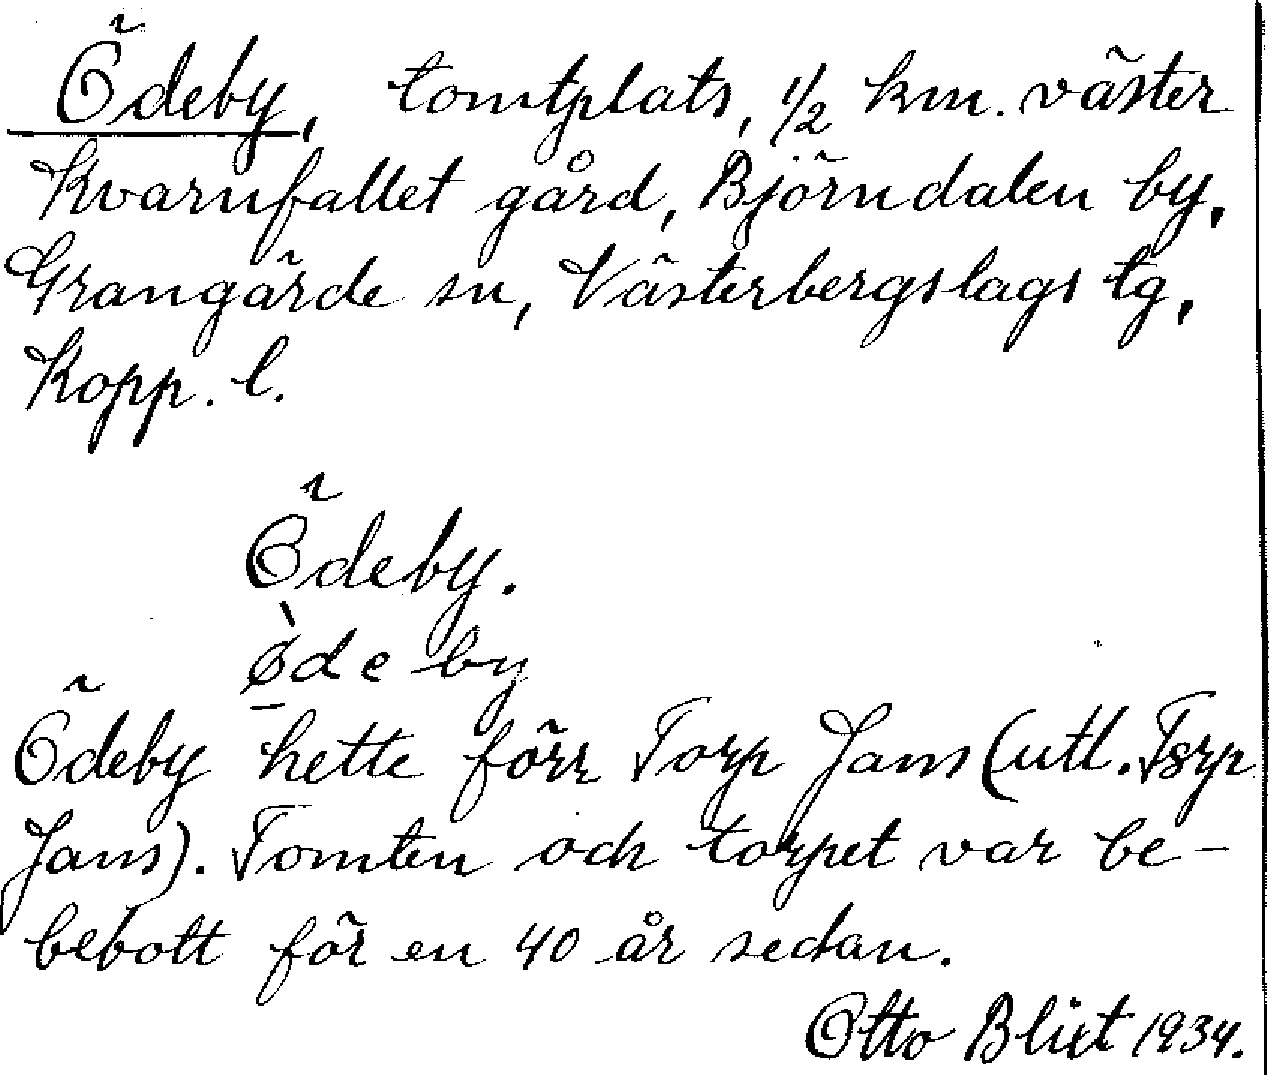 Ödeby, tomtplats, 1/2 km. väster
Kvarnfallet gård, Björndalen by,
Grangärde sn, Västerbergslags tg,
Kopp. l.
Ödeby.
ø̀de by
Ödeby hette förr Torp Jans (utl. Tsrp
Jans). Tomten och torpet var be-
bebott för en 40 år sedan.
Otto Blixt 1934.